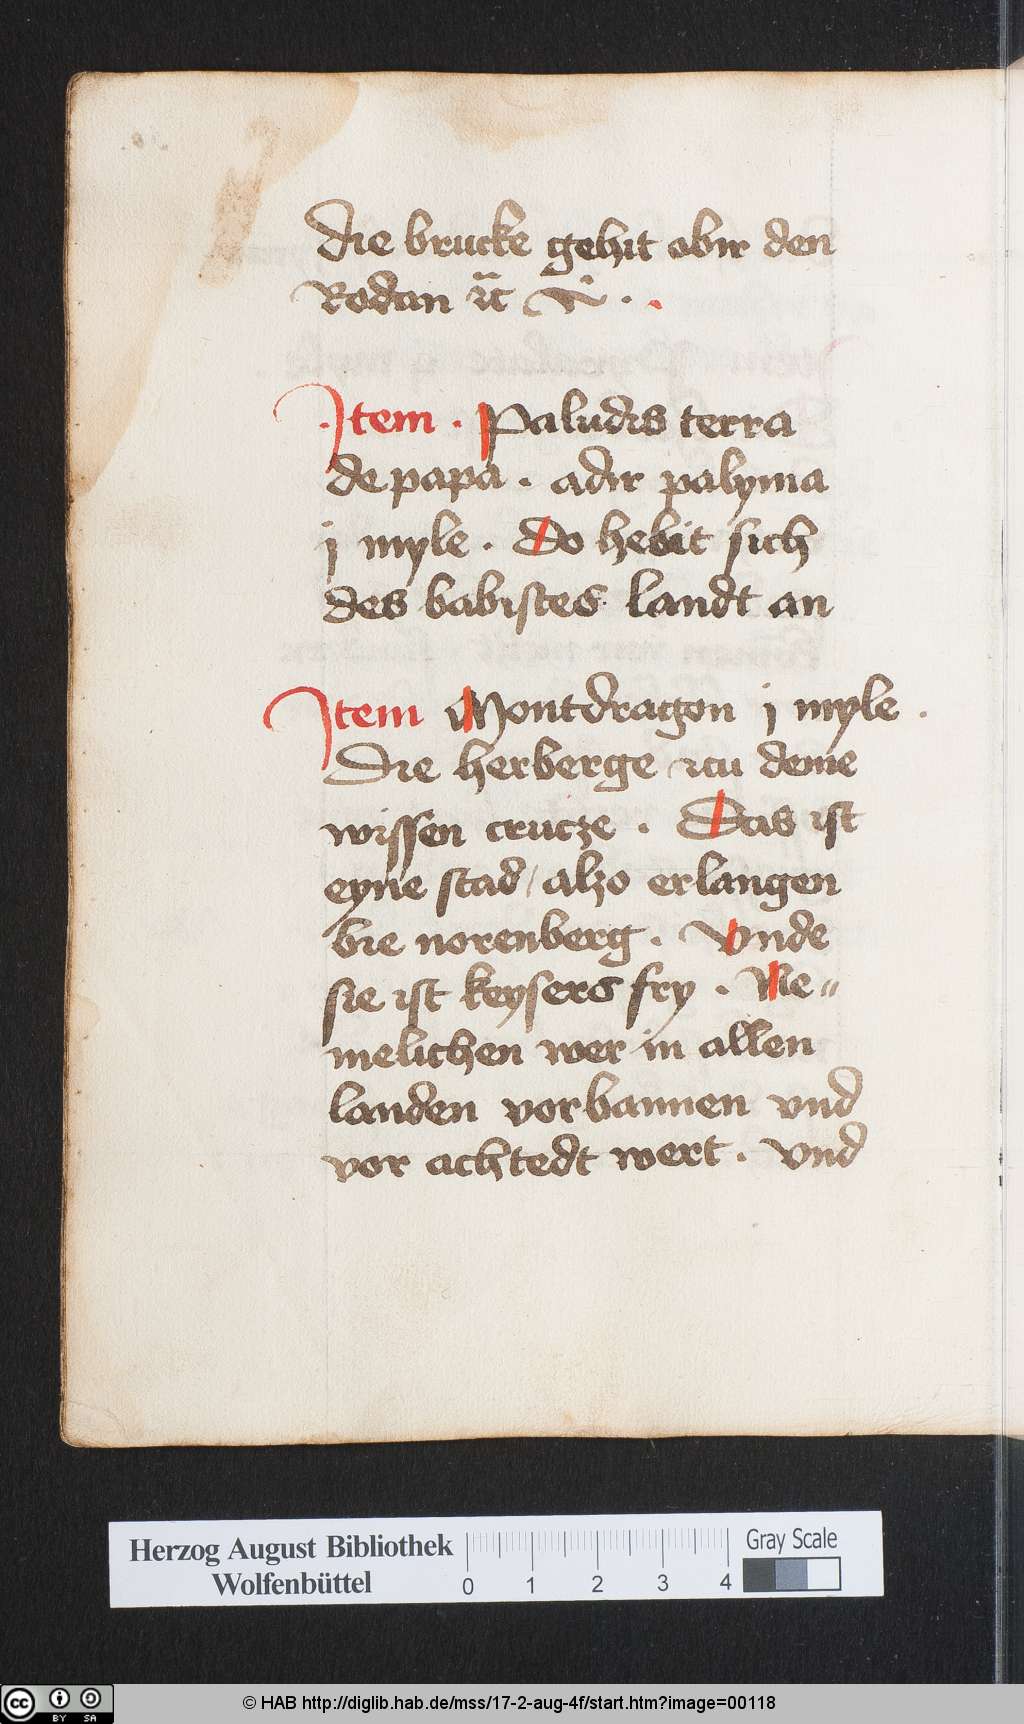 Die brucke gehit obir den
Rodan ꝛc
Jtem . Paludis terra
de papa . adir palyma
j myle . Do hebit sich
des babistes landt an
Jtem Montdragon j myle .
Die herberge zcu deme
wissen crucze . Das ist
eyne stad / alzo erlangen
bie norenberg . Vnde
sie ist keysers fry . Ne=
melichen wer in allen
landen vorbannen vnd
vor achtedt wert . vnd
Herzog August Bibliothek
Wolfenbüttel
0 1 2 3 4
Gray Scale
cc BY SA
© HAB http://diglib.hab.de/mss/17-2-aug-4f/start.htm?image=00118